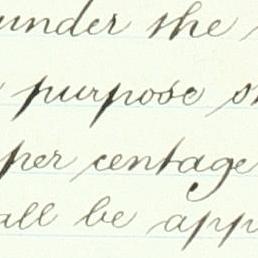 under the
purpose s
per centage
all be app